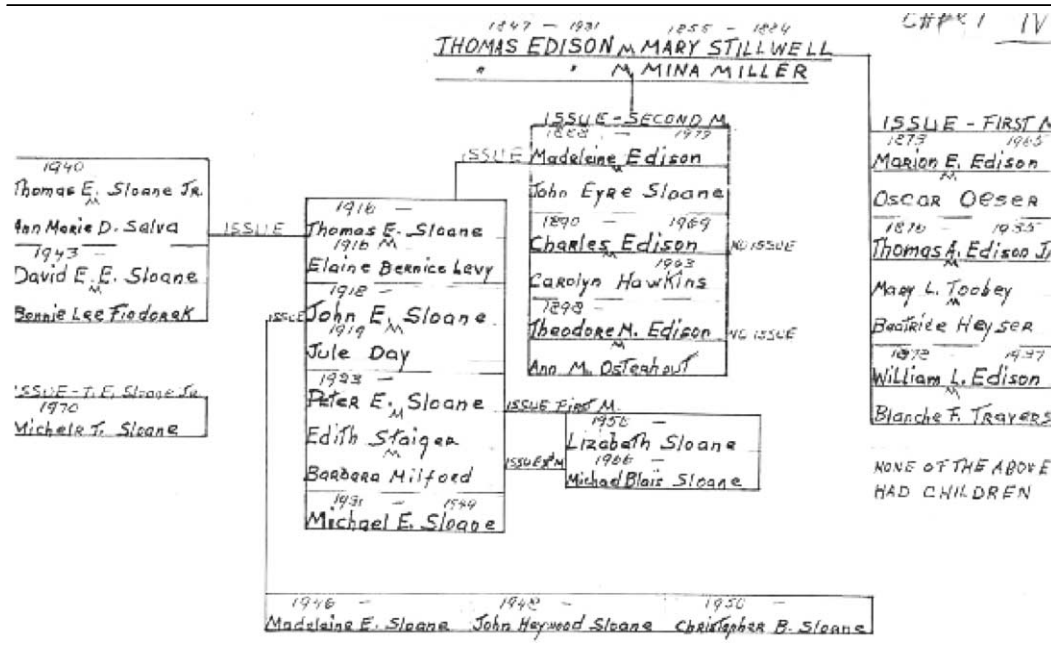 CHART IV
1847 - 1931 1855 - 1884
THOMAS EDISON M MARY STILLWELL
" " M MINA MILLER
ISSUE - SECOND M.
1888 - 1979
ISSUE Madeleine Edison
M
John Eyre Sloane
1890 - 1969
Charles Edison NO ISSUE
M 1963
Carolyn Hawkins
1898 -
Theodore M. Edison NO ISSUE
M
Ann M. Osterhout
ISSUE - FIRST M
1873 1965
Marion E. Edison
M
Oscar Oeser
1876 - 1935
Thomas A. Edison Jr
M
Mary L. Toohey
M
Beatrice Heyser
1878 - 1937
William L. Edison
M
Blanche F. Travers
NONE OF THE ABOVE
HAD CHILDREN
1940
Thomas E. Sloane Jr.
M
Ann Marie D. Salva
1943 -
David E.E. Sloane
M
Bonnie Lee Fiedorek
ISSUE - T.E. Sloane Jr.
1970
Michele T. Sloane
ISSUE
1916 -
Thomas E. Sloane
1916 M
Elaine Bernice Levy
1918 -
ISSUE John E. Sloane
1919 M
Jule Day
1923 -
Peter E. Sloane ISSUE First M.
M
Edith Staiger
M
Barbara Milford ISSUE M
1931 - 1949
Michael E. Sloane
1956 -
Lizabeth Sloane
1966 -
Michael Blair Sloane
1946 - 1948 - 1950 -
Madeleine E. Sloane John Heywood Sloane Christopher B. Sloane